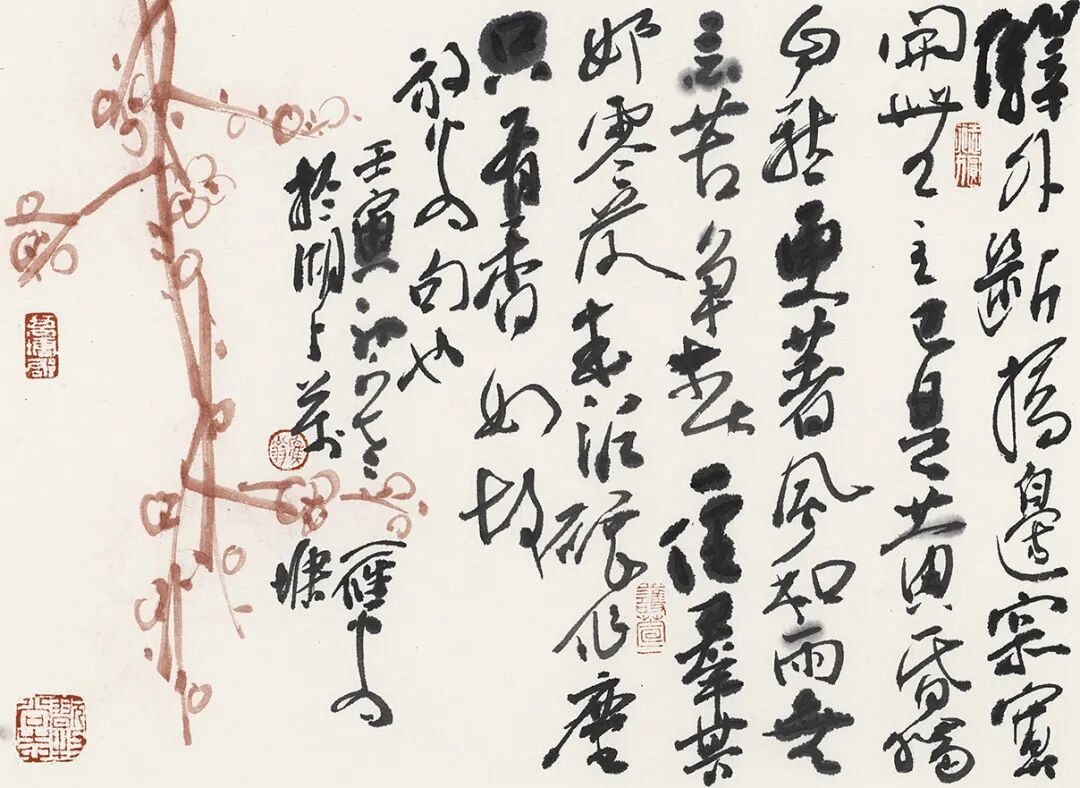 驛外斷橋邊寂寞
開無主已是黃昏獨
自愁更著風和雨無
意苦爭春一任羣芳
妒零落成泥碾作塵
只有香如故
放翁句也
壬寅初
於湖上